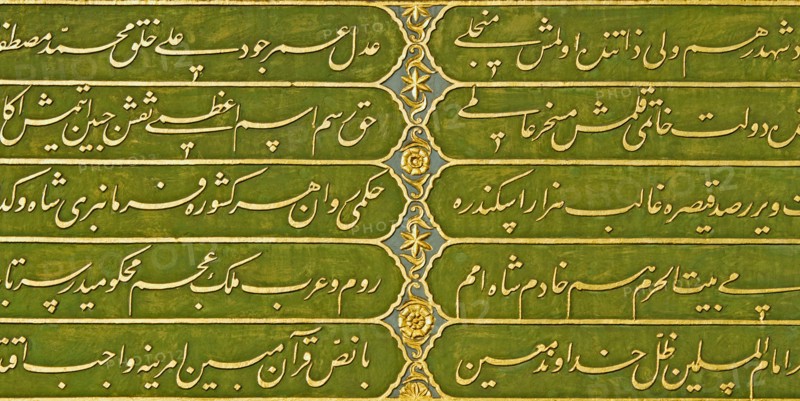 شهدر هم ولی ذاتنده اولمش منجلی عدل عمر جود علی خلق محمد مصطفی
دولت خاتمی قلمش مسخر عالمی حق رسم اسم اعظمی نقش جبین ایتمش اکا
ویرر صد قیصره غالب هزار اسکندره حکمی روان هر کشوره فرمانبری شاه و کدا
بیت الحرم هم خادم شاه امم روم و عرب ملک عجم محکومیدر سرتا
امام المسلمین ظل خداوند معین با نص قرآن مبین امرینه واجب